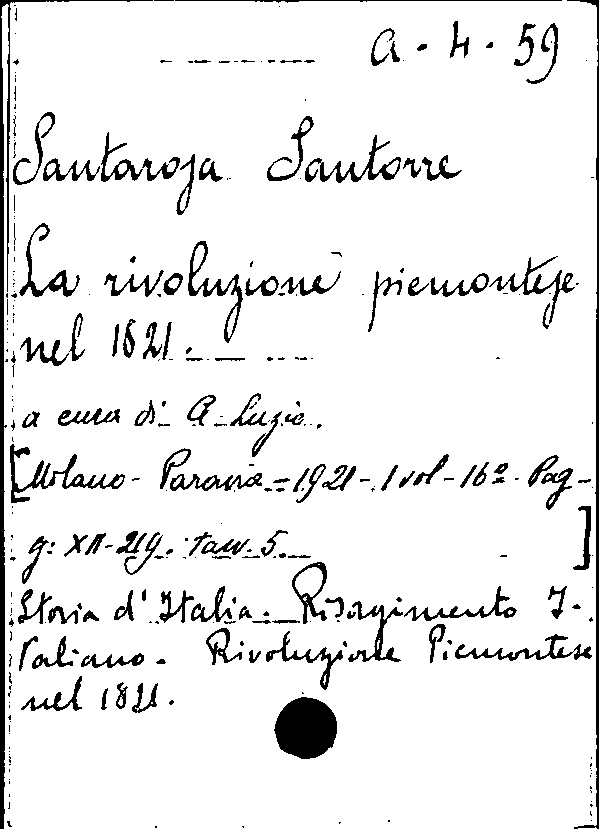 A - 4 - 59
Santarosa Santorre
La rivoluzione piemontese
nel 1821.
a cura di A. Luzio.
[Milano - Paravia = 1921 - 1 vol - 16º - Pag-
g: XII - 219. tavv. 5.]
Storia d'Italia. Risorgimento I-
taliano. Rivoluzione Piemontese
nel 1821.